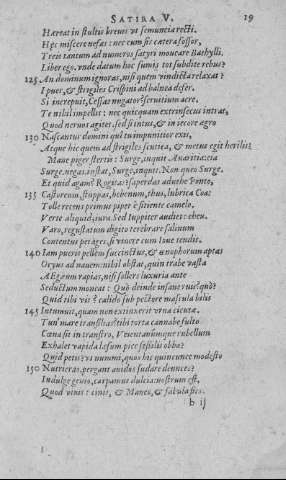 SATIRA V. 19
Hæreat in stultis breuis vt semuncia recti.
Hæc miscere nefas: nec cum sis cætera fossor,
Treis tantum ad numeros satyri moueare Bathylli.
Liber ego. vnde datum hoc sumis tot subdite rebus?
125 An dominum ignoras, nisi quem vindicta relaxat?
I puer, & strigiles Crispini ad balnea defer.
Si increpuit, Cessas nugator? seruitium acre
Te nihil impellit: nec quicquam extrinsecus intrat,
Quod neruos agitet. sed si intus, & in iecore ægro
130 Nascantur domini qui tu impunitior exis,
Atque hic quem ad strigiles scutica, & metus egit herilis?
Mane piger stertis: Surge, inquit Auaritia: eia
Surge. negas. instat, Surge, inquit. Non queo. Surge.
Et quid agam? Rogitas? saperdas aduehe Ponto,
135 Castoreum, stuppas, hebenum, thus, lubrica Coa:
Tolle recens primus piper è sitiente camelo.
Verte aliquid, iura. Sed Iuppiter audiet: eheu.
Varo, regustatum digito terebrare salinum
Contentus perages, si viuere cum Ioue tendis.
140 Iam pueris pellem succinctus, & œnophorum aptas
Ocyus ad nauem: nihil obstat, quin trabe vasta
Ægæum rapias, nisi sollers luxuria ante
Seductum moneat: Quò deinde insane ruis? quò?
Quid tibi vis? calido sub pectore mascula bilis
145 Intumuit, quam non extinxerit vrna cicutæ.
Tun' mare transilias? tibi torta cannabe fulto
Cœna sit in transtro, Veientanúmque rubellum
Exhalet vapida læsum pice sessilis obba?
Quid petis? vt nummi, quos hic quincunce modesto
150 Nutrieras, pergant auidos sudare deunces?
Indulge genio, carpamus dulcia: nostrum est,
Quod viuis: cinis, & Manes, & fabula fies.
b ij